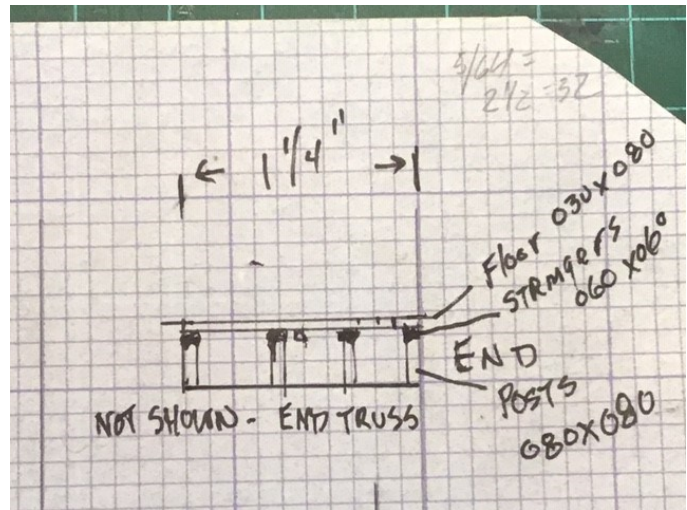 5/64 =
2 1/2 = 32
← 1 1/4" →
Floor 030 x 080
STRINGERS
060 x 060
END
POSTS
080X080
NOT SHOWN - END TRUSS